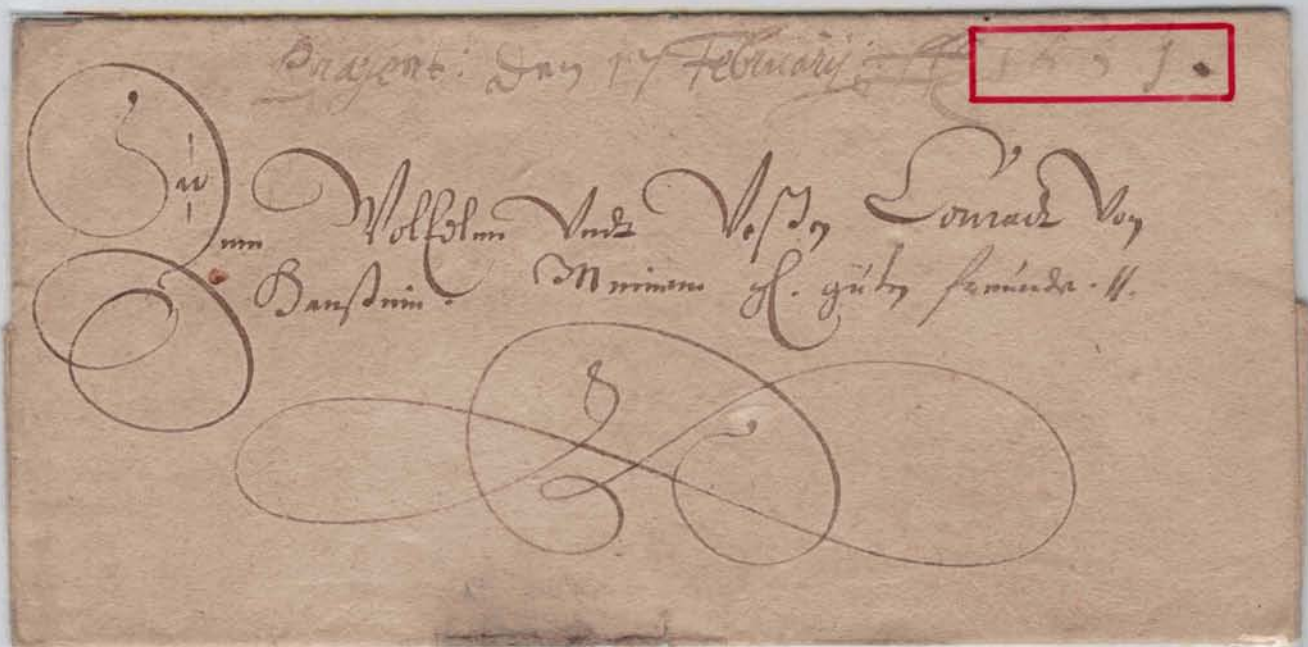 Præsent: Den 17 Februarij
Dem WolEdlen Vndt Vesten Conradt Von
Hanstein. Meinem gl. guten freunde. //.